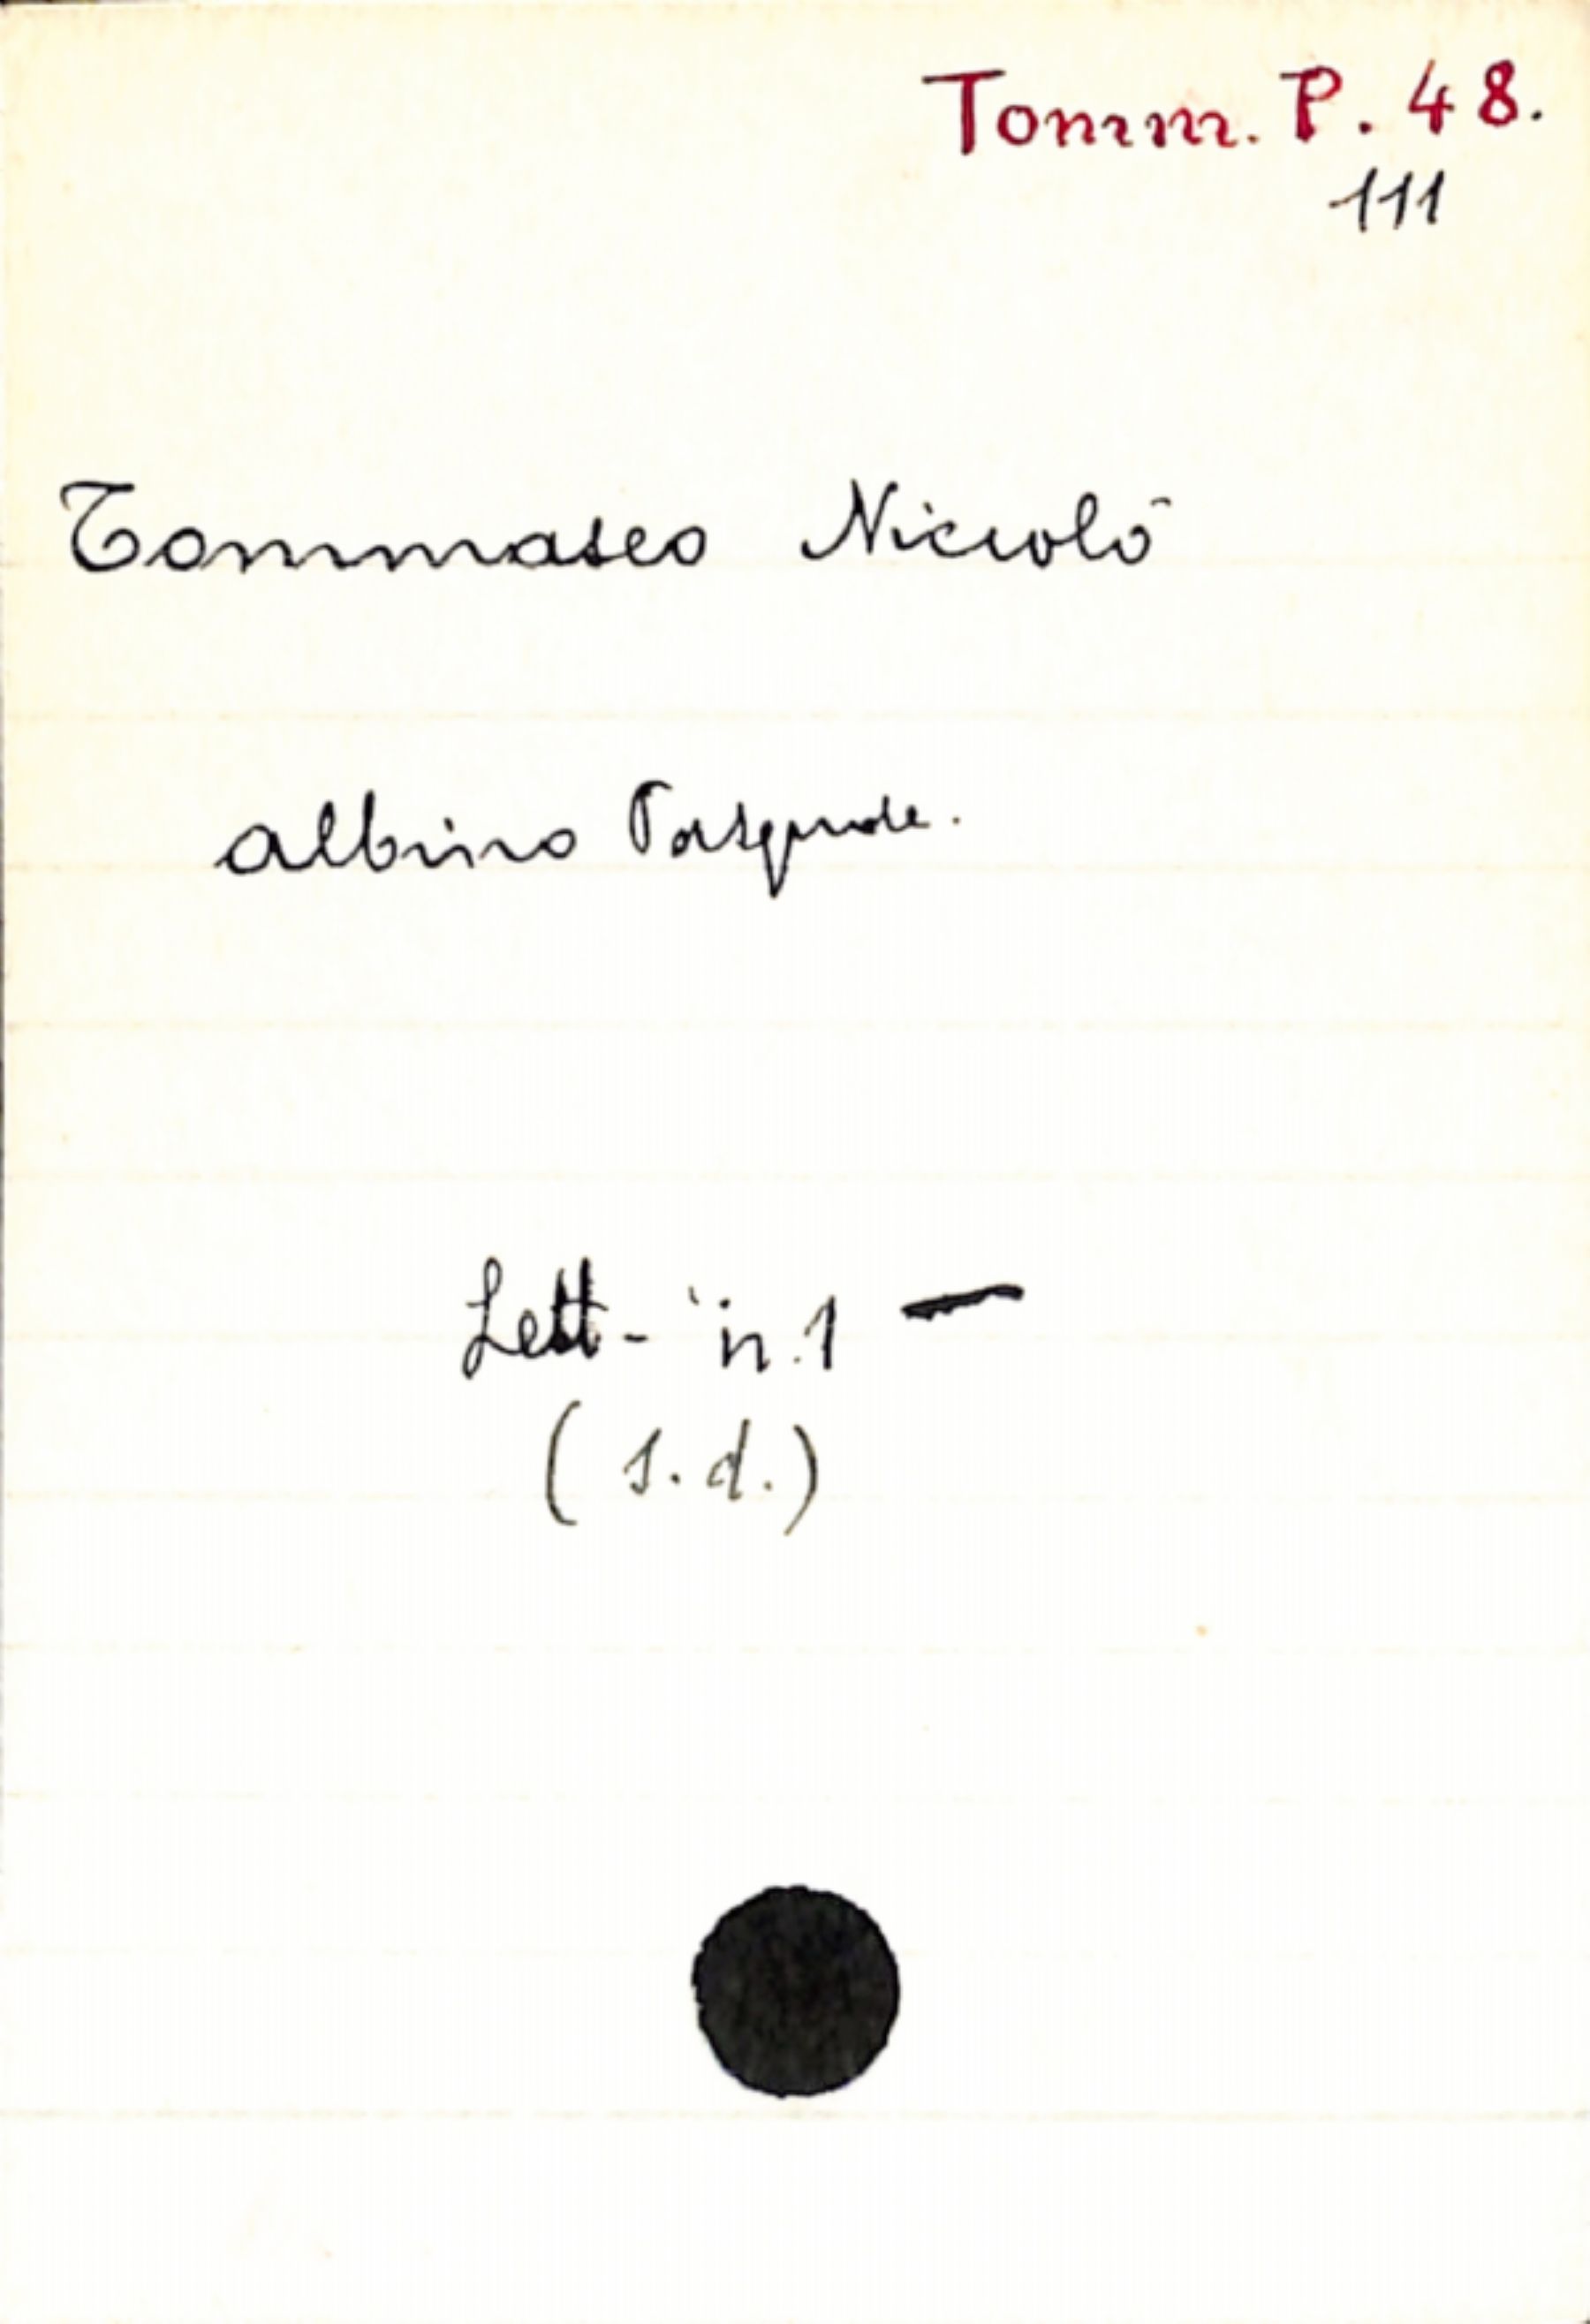 Tomm. P. 48.
111
Tommaseo Niccolò
Albino Pasquale.
Lett- n.1 —
(s.d.)